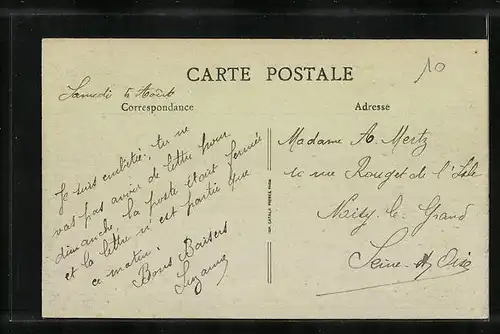 10
CARTE POSTALE
Samedi 5 Août
Correspondance
Adresse
Je suis embêtée, tu ne
vas pas avoir de lettre pour
dimanche, la poste était fermée
et la lettre n'est partie que
ce matin.
Bons Baisers
Suzanne
Madame A. Mertz
10 rue Rouget de l'Isle
Noisy-le-Grand
Seine-et-Oise